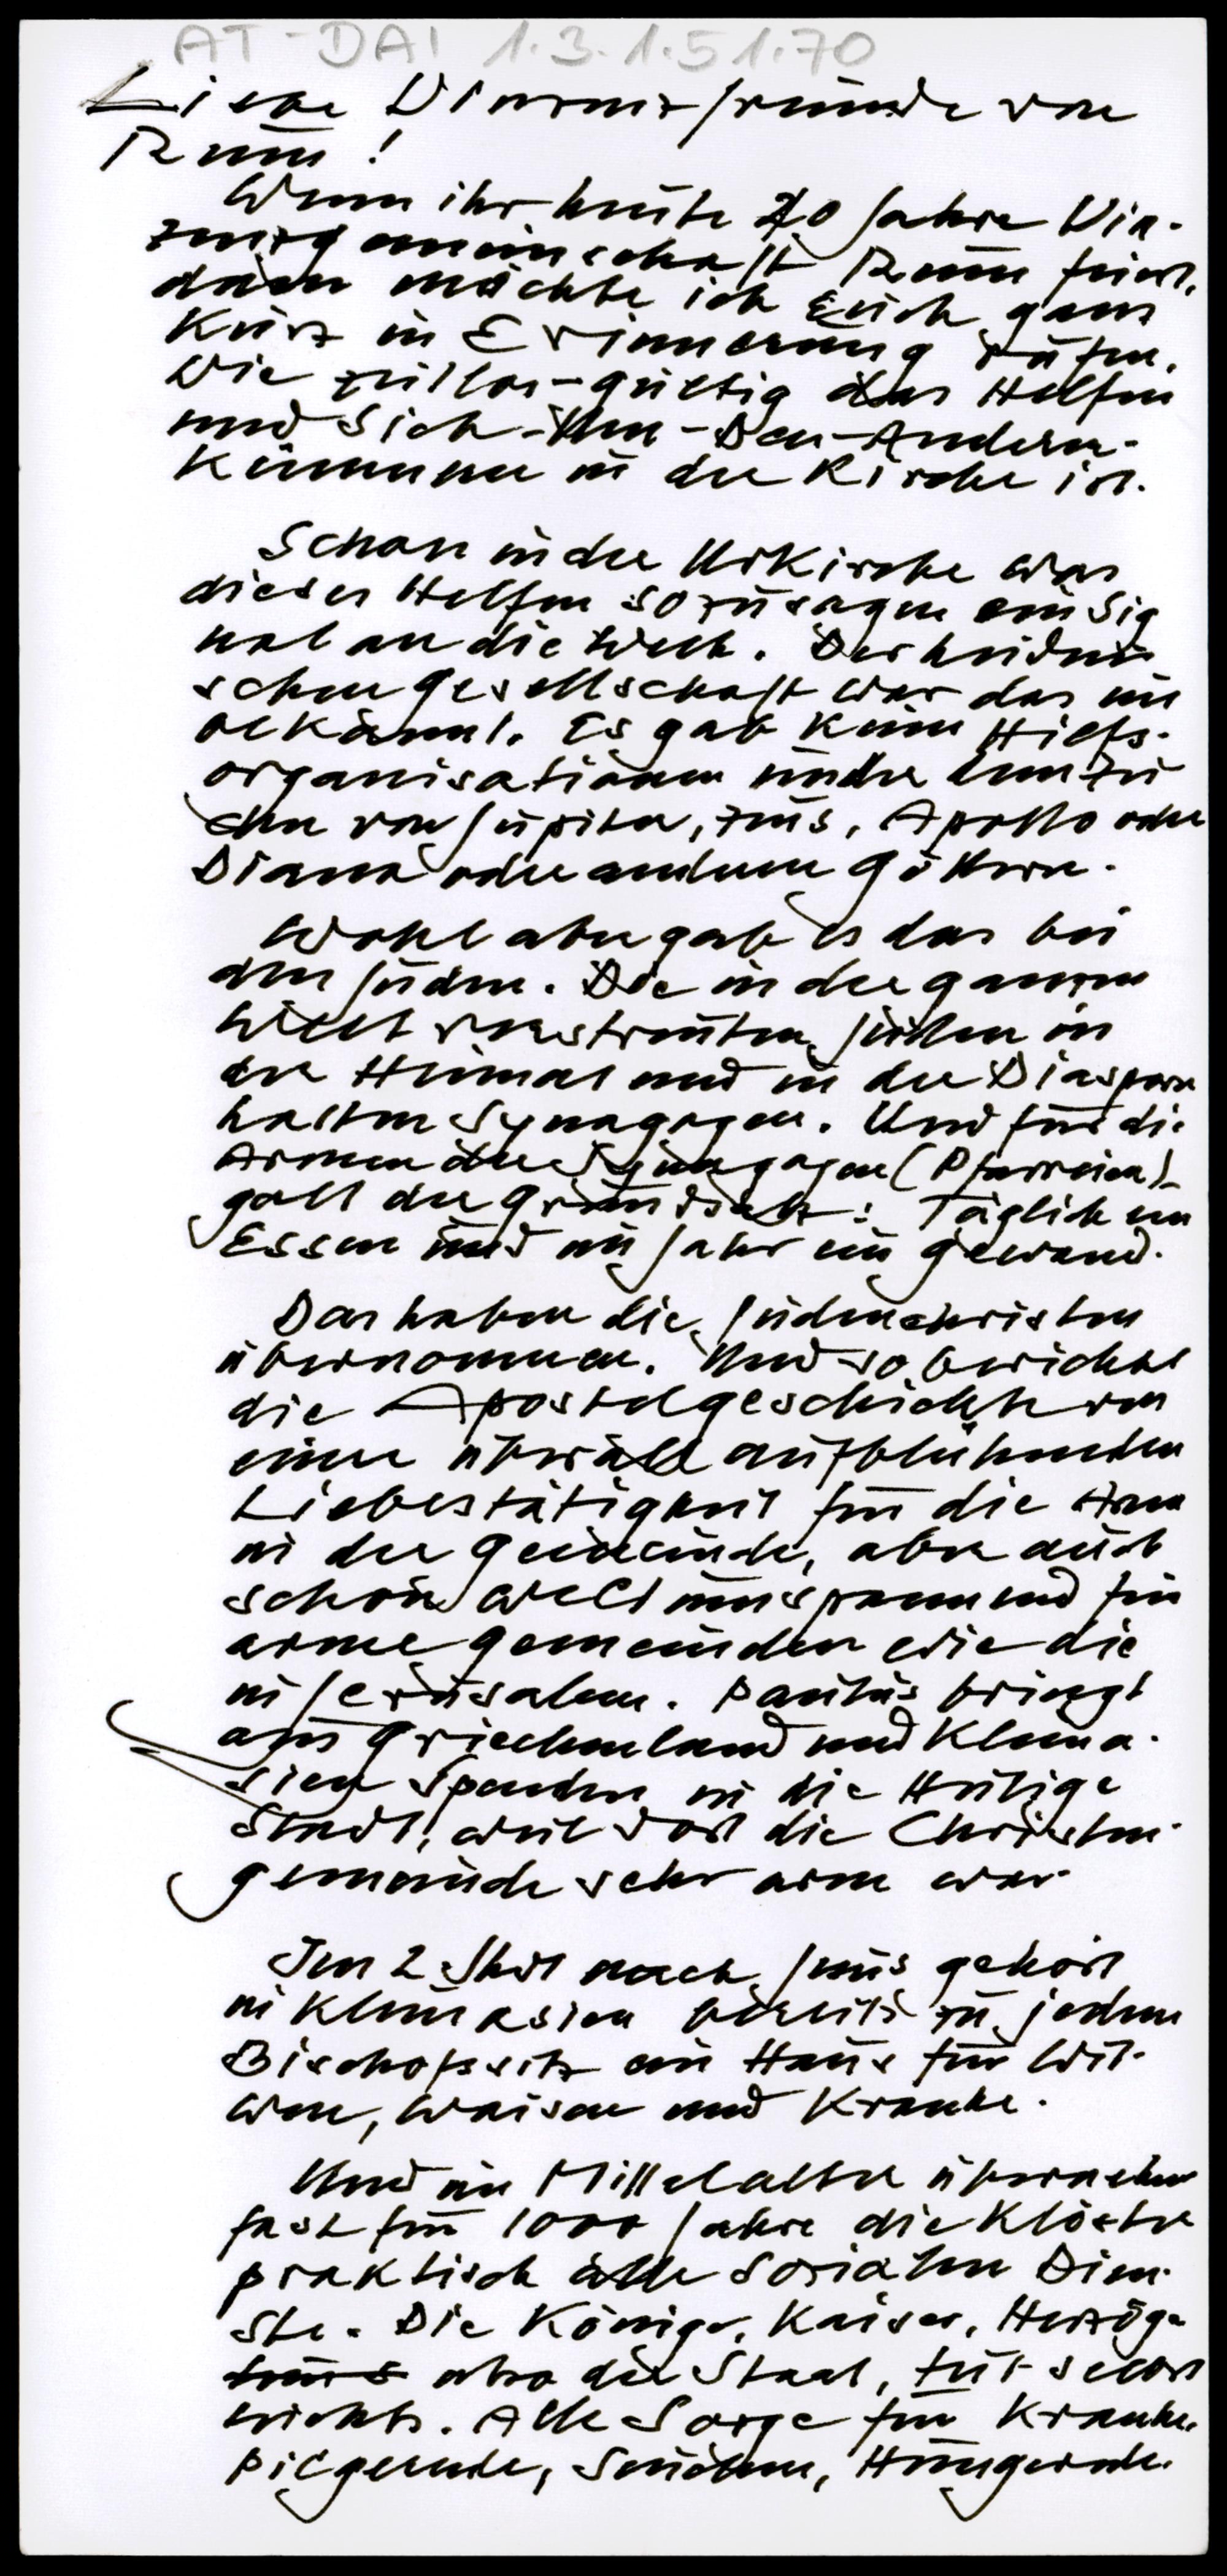 AT-DAI 1.3.1.51.70
Liebe Vinzenzfreunde von
Rum!
Wenn ihr heute 20 Jahre Vin-
zenzgemeinschaft Rum feiert,
dann möchte ich Euch ganz
kurz in Erinnerung rufen,
wie zeitlos-gültig das Helfen
und Sich-Um-Den-Andern-
Kümmern in der Kirche ist.
Schon in der Urkirche war
dieses Helfen sozusagen ein Sig
nal an die Welt. Der heidni-
schen Gesellschaft war das un
bekannt. Es gab keine Hilfs-
organisationen in den
von Jupiter, Zeus, Apollo oder
Diana oder anderen Göttern.
Wohl aber gab es das bei
den Juden. Die in der ganzen
Welt verstreuten Juden in
der Heimat und in der Diaspora
hatten Synagogen. Und für die
Armen der Synagogen (Pfarreien)
galt der Grundsatz: Täglich ein
Essen und im Jahr ein Gewand.
Das haben die Judenchristen
übernommen. Und so berichtet
die Apostelgeschichte von
einer überall aufblühenden
Liebestätigkeit für die Armen
in der Gemeinde, aber auch
schon weltumspannend für
arme Gemeinden wie die
in Jerusalem. Paulus bringt
aus Griechenland und Kleina-
sien Spenden in die Heilige
Stadt, weil dort die Christen-
gemeinde sehr arm war.
Im 2. Jhdt nach Jesus gehört
in Kleinasien bereits zu jedem
Bischofssitz ein Haus für Wit-
wen, Waisen und Kranke.
Und im Mittelalter übernehmen
fast für 1000 Jahre die Klöster
praktisch alle sozialen Dien-
ste. Die Könige, Kaiser, Herzöge
also der Staat, tut selbst
nichts. Alle Sorge für Kranke,
Pilgernde, Seuchen, Hungernde.